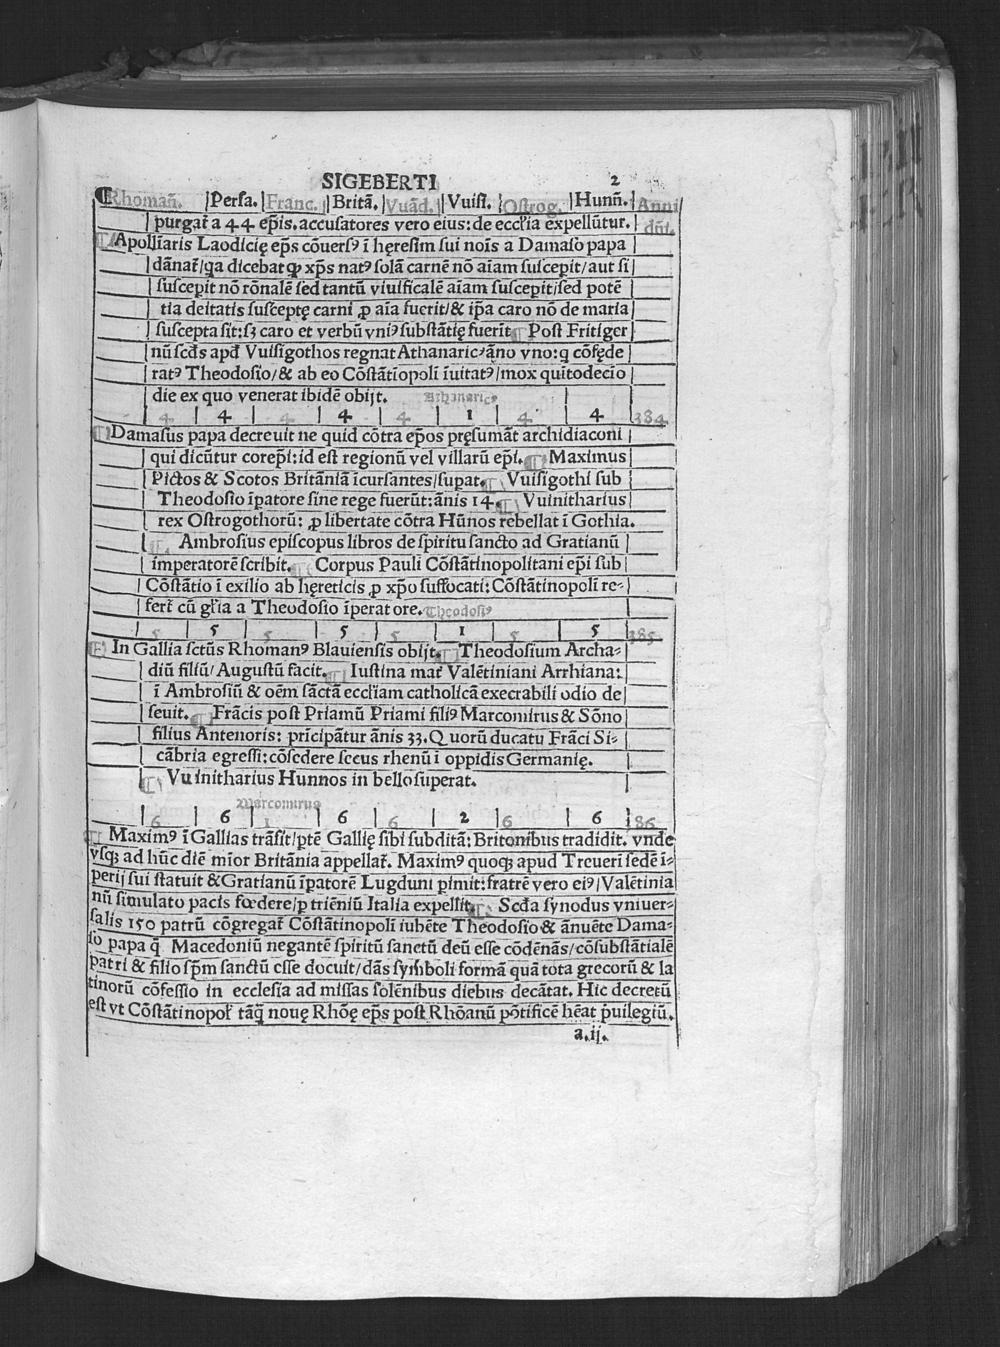 SIGEBERTI 2
¶Rhomañ. Persa. Franc. Britã. Vuãd. Vuisi. Ostrog. Hunñ. Anni
purgat̃ a 44 ep̃is. accusatores vero eius: de eccl̃ia expellũtur. dñi.
¶Apolliaris Laodicię ep̃s cõuersꝰ ĩ hęresim sui nois a Damaso papa
dãnat̃/qa dicebat ꝙ xp̃s natꝰ solã carnẽ nõ aiam suscepit/aut si
suscepit nõ rõnalẽ sed tantũ viuificalẽ aĩam suscepit/sed potẽ
tia deitatis susceptę carni ꝓ aĩa fuerit/& ip̃a caro nõ de maria
suscepta sit: sꝫ caro et verbũ vniꝰ substãtię fuerĩt ¶ Post Fritiger
nũ scd̃s apd̃ Vuisigothos regnat Athanaricꝰ ãno vno: q cõfęde
ratꝰ Theodosio/& ab eo Cõstãtĩopoli ĩuitatꝰ/mox quĩtodecĩo
die ex quo venerat ibidẽ obijt. Athanaricꝰ
4 4 4 4 4 1 4 4 384
¶Damasus papa decreuit ne quid cõtra ep̃os pręsumãt archidiaconi
qui dicũtur corep̃i: id est regionũ vel villarũ ep̃i. ¶ Maximus
Pictos & Scotos Britãniã ĩcursantes/supat. ¶ Vuisigothi sub
Theodosio ĩpatore sine rege fuerũt: ãnis 14. ¶ Vuinitharius
rex Ostrogothorũ: ꝓ libertate cõtra Hũnos rebellat ĩ Gothia.
¶ Ambrosius episcopus libros de spiritu sancto ad Gratianũ
imperatorẽ scribit. ¶ Corpus Pauli Cõstãtinopolitani ep̃i sub
Cõstãtio ĩ exilio ab hęreticis ꝓ xp̃o suffocati: Cõstãtinopolĩ re-
fert̃ cũ gl̃ia a Theodosio ĩperatore. Theodosiꝰ
5 5 5 5 5 1 5 5 385
¶ In Gallia sctũs Rhomanꝰ Blauiensis obijt. ¶ Theodosium Archa-
diũ filiũ/ Augustũ facit. ¶ Iustina mat̃ Valẽtiniani Arrhiana:
ĩ Ambrosiũ & oẽm sãctã eccl̃iam catholicã execrabili odio de
seuit. ¶ Frãcis post Priamũ Priami filiꝰ Marcomirus & Sõno
filius Antenoris: prĩcipãtur ãnis 33. Quorũ ducatu Frãci Si-
cãbria egressi: cõsedere sccus rhenũ ĩ oppidis Germanię.
¶ Vuinitharius Hunnos in bello superat.
Marcomirus
6 6 1 6 6 2 6 6 386
¶ Maximꝰ ĩ Gallias trãsit/ptẽ Gallię sibi subditã: Britonibus tradidit. vnde
vsqꝫ ad hũc diẽ mĩor Britãnia appellat̃. Maximꝰ quoqꝫ apud Treueri sedẽ ĩ-
perij sui statuit & Gratianũ ĩpatorẽ Lugduni pimit: fratrẽ vero eiꝰ/ Valẽtinia
nũ simulato pacis fœdere/ꝑ triẽniũ Italia expellit. ¶ Scd̃a synodus vniuer-
salis 150 patrũ cõgregat̃ Cõstãtinopoli iubẽte Theodosio & ãnuẽte Dama-
so papa q̃ Macedoniũ negantẽ spiritũ sanctũ deũ esse cõdẽnãs/cõsubstãtialẽ
patri & filio sp̃m sanctũ esse docuit/dãs symboli formã quã tota grecorũ & la
tinorũ cõfessio in ecclesia ad missas solẽnibus diebus decãtat. Hic decretũ
est vt Cõstãtinopol̃ tãq̃ nouę Rhõę ep̃s post Rhõanũ põtificẽ hẽat p̃uilegiũ.
a.ij.